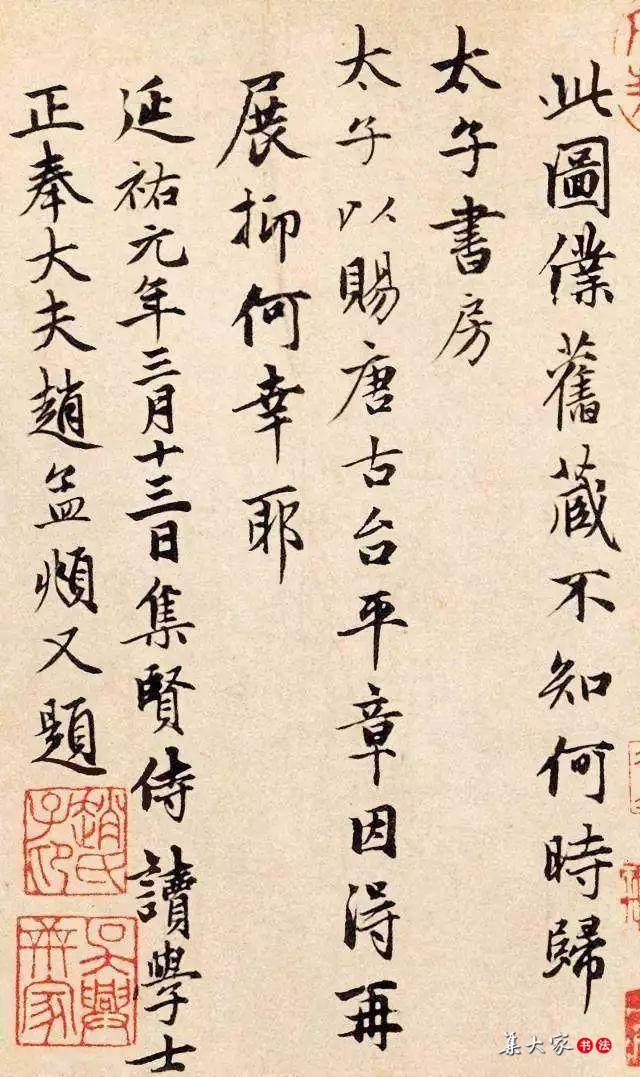 此圖僕舊藏不知何時歸
太子書房
太子以賜唐古台平章因得再
展抑何幸耶
延祐元年三月十三日集賢侍讀學士
正奉大夫趙孟頫又題
趙氏子印
集大家書法